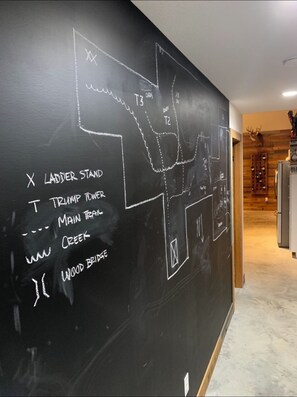 XX
T3
T2
X LADDER STAND
T TRUMP TOWER
MAIN TRAIL
CREEK
WOOD BRIDGE